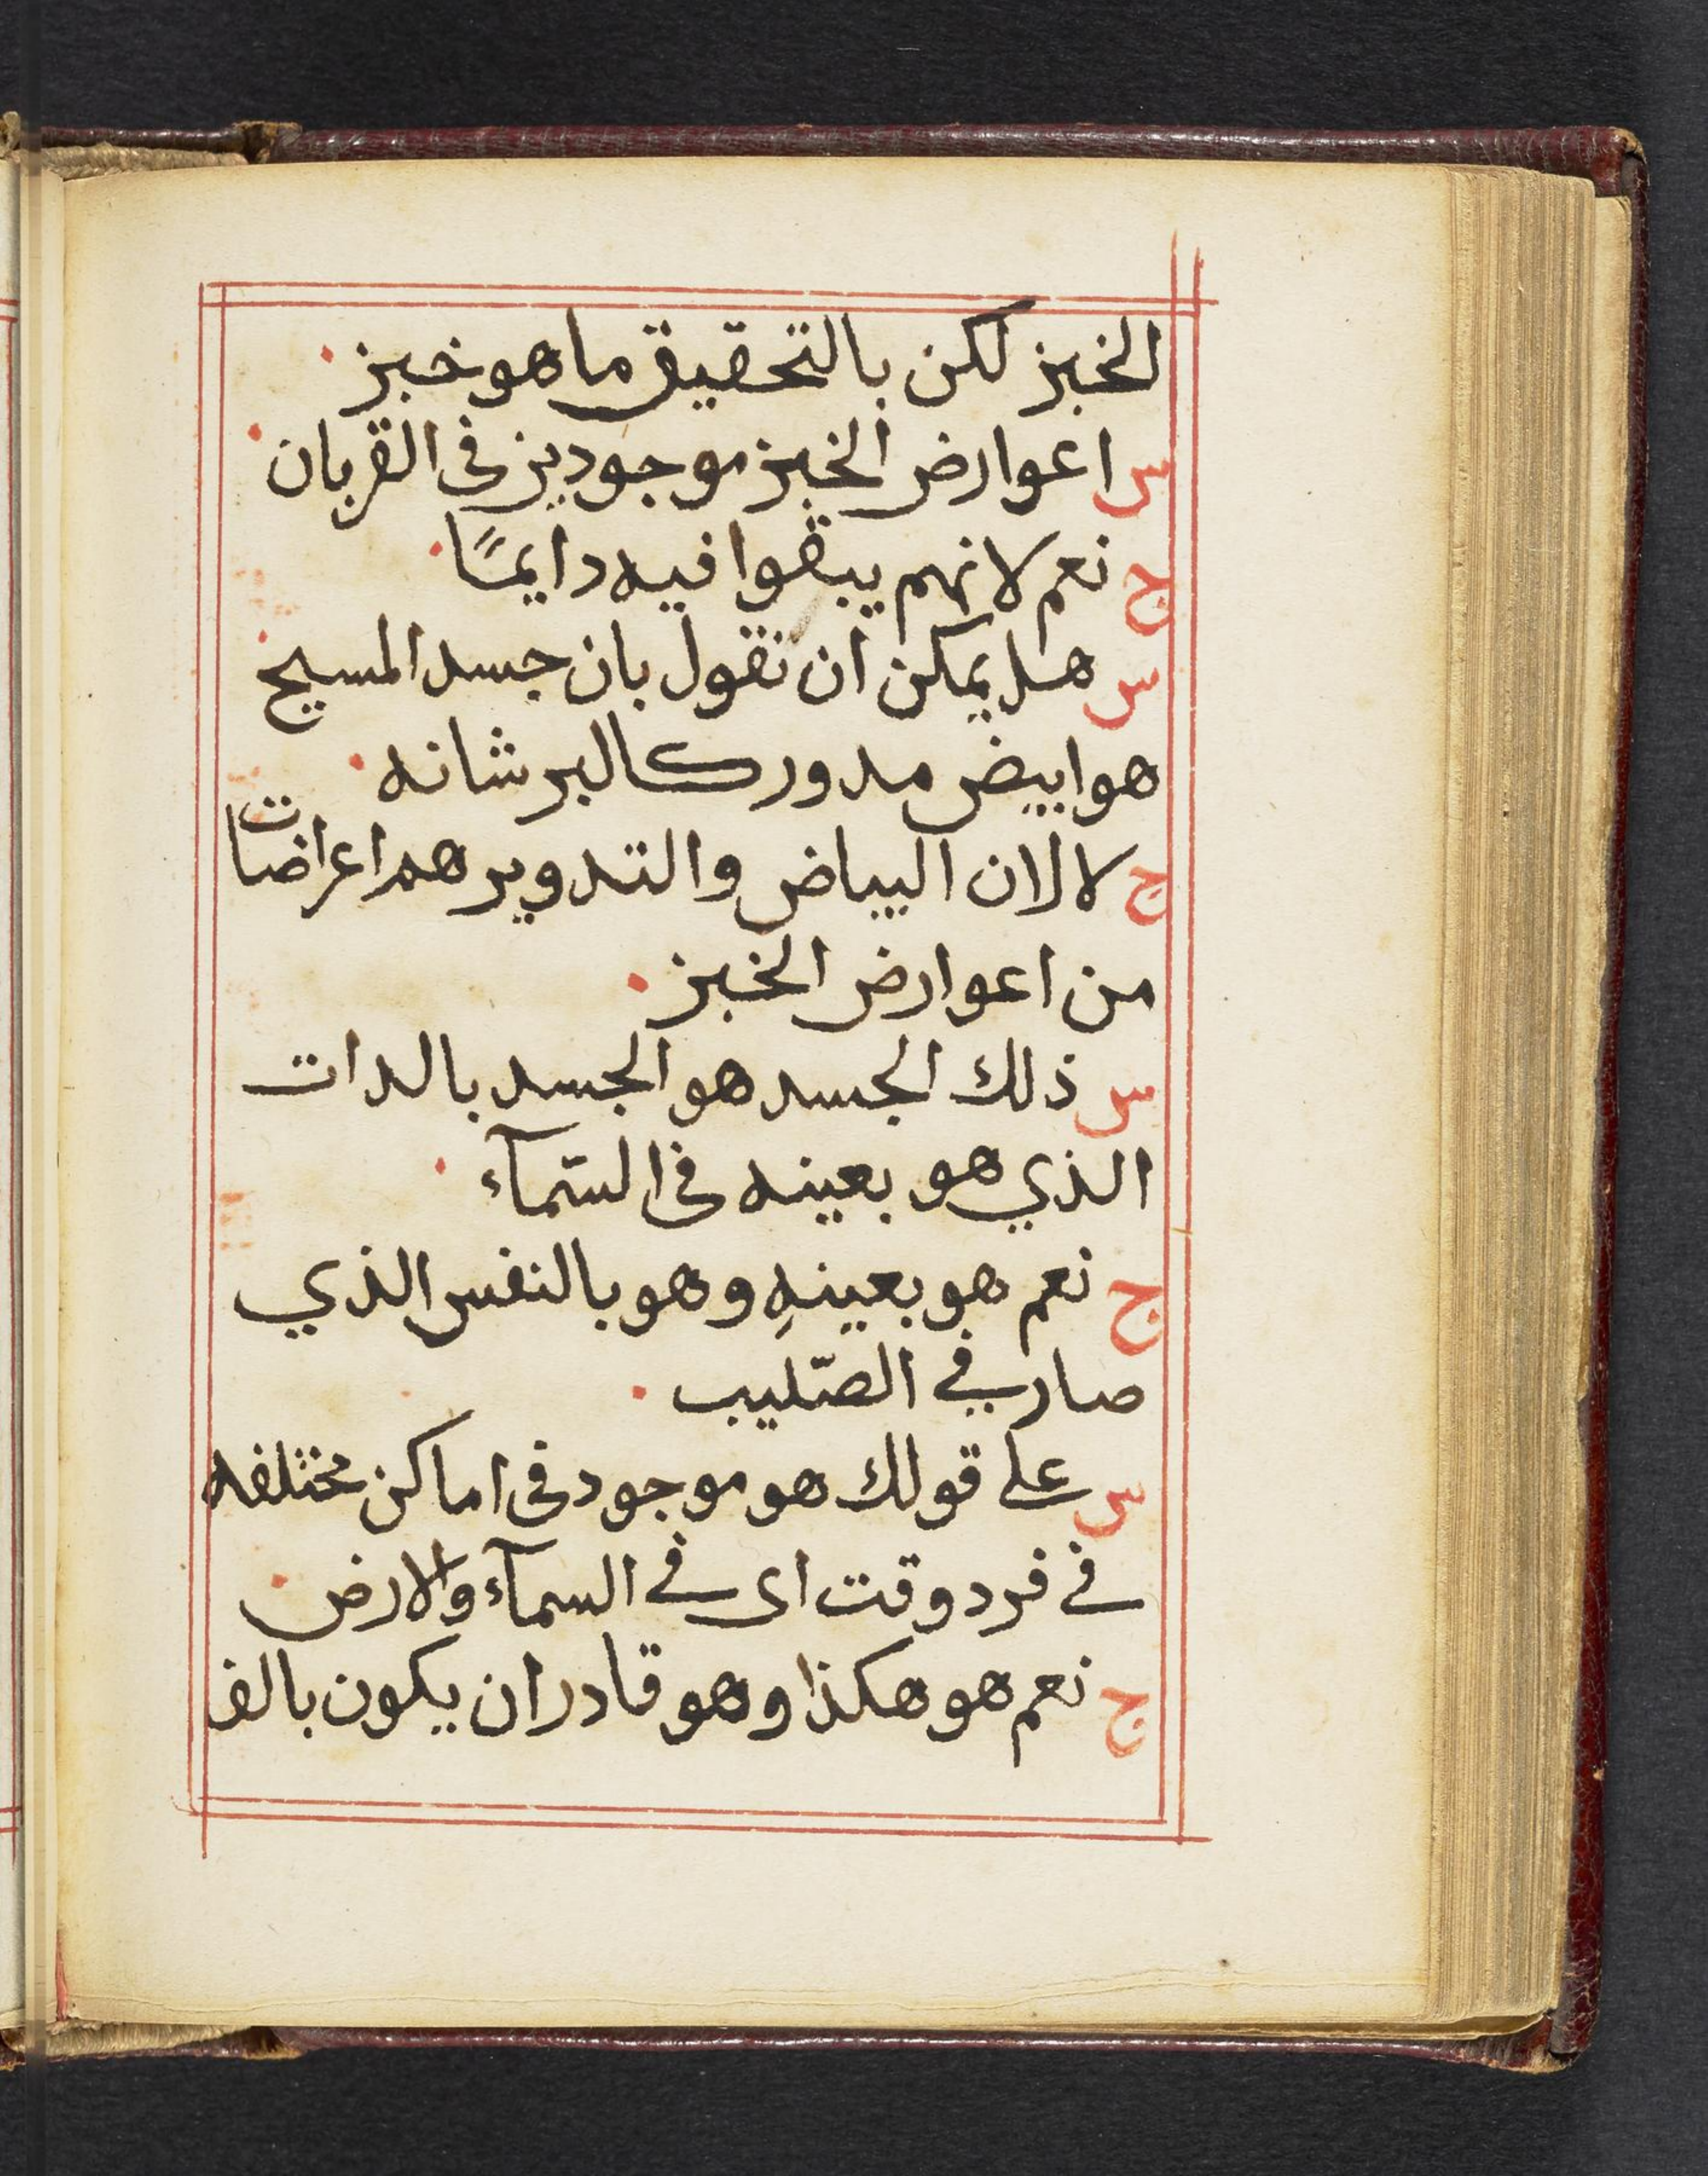 الخبز لكن بالتحقيق ما هو خبز.
س اعوارض الخبز موجودين في القربان.
ج نعم لانهم يبقوا فيه دايمًا.
س هل يمكن ان نقول بان جسد المسيح
هو ابيض مدور كالبرشانه.
ج لا لان البياض والتدوير هم اعراضات
من اعوارض الخبز.
س ذلك الجسد هو الجسد بالدات
الذي هو بعينه في السّمآء.
ج نعم هو بعينهِ وهو بالنفس الذي
صار في الصّليب.
س على قولك هو موجود في اماكن مختلفه
في فرد وقت اى في السمآء والارض.
ج نعم هو هكذا وهو قادر ان يكون بالف